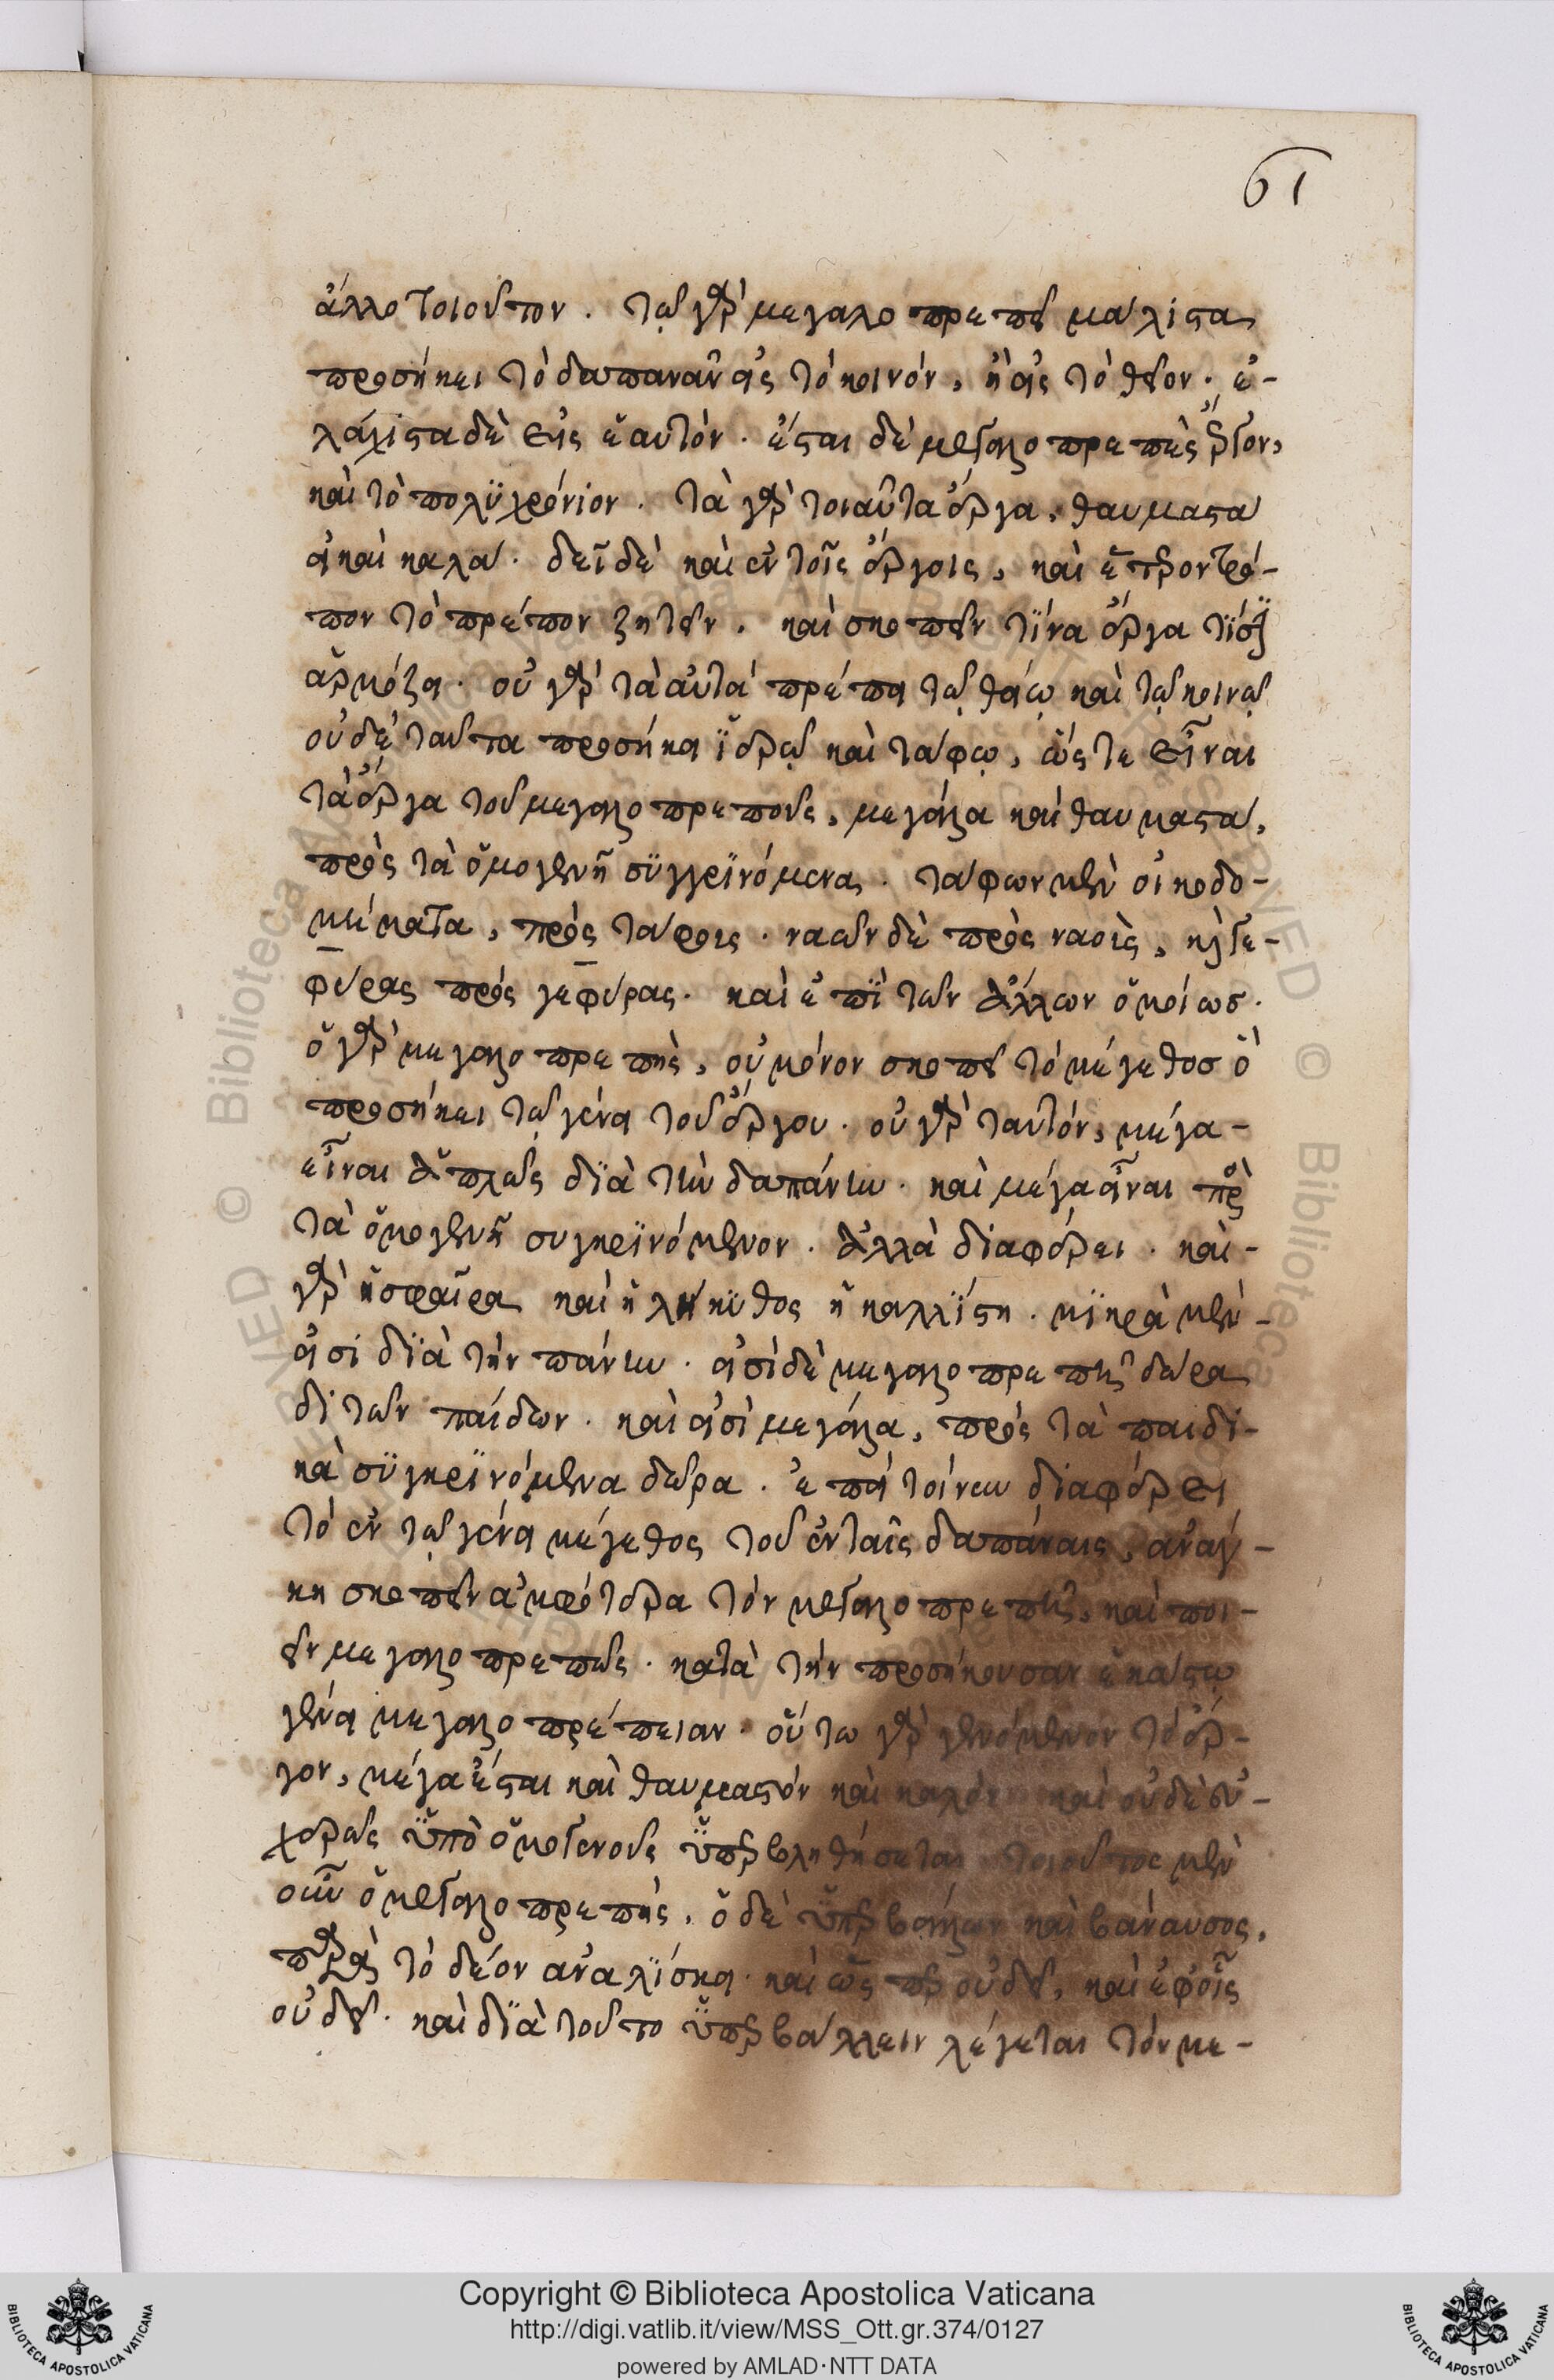 61
ἄλλο τοιοῦτον. τῷ γὰρ μεγαλοπρεπεῖ μάλιστα
προσήκει τὸ δαπανᾶν εἰς τὸ κοινόν, ἢ εἰς τὸ θεῖον. ἐ-
λάχιστα δὲ εἰς ἑαυτόν. ἔσται δὲ μεγαλοπρεπὲς ἔργον,
καὶ τὸ πολυχρόνιον. τὰ γὰρ τοιαῦτα ἔργα, θαυμαστὰ
εἰ καὶ καλά. δεῖ δὲ καὶ ἐν τοῖς ἔργοις, καὶ ἕτερον τρό-
πον τὸ πρέπον ζητεῖν. καὶ σκοπεῖν τίνα ἔργα τίσιν
ἁρμόζει. οὐ γὰρ τὰ αὐτὰ πρέπει τῷ θείῳ καὶ τῷ κοινῷ
οὐδὲ ταῦτα προσήκει ἱερῷ καὶ τάφῳ, ὥστε εἶναι
τὰ ἔργα τοῦ μεγαλοπρεποῦς, μεγάλα καὶ θαυμαστά,
πρὸς τὰ ὁμογενῆ συγκρινόμενα. τάφων μὲν οἰκοδο-
μήματα, πρὸς τάφους. ναῶν δὲ πρὸς ναοὺς, καὶ γε-
φύρας πρὸς γεφύρας. καὶ ἐπὶ τῶν ἄλλων ὁμοίως.
ὁ γὰρ μεγαλοπρεπὴς, οὐ μόνον σκοπεῖ τὸ μέγεθος ὃ
προσήκει τῷ γένει τοῦ ἔργου. οὐ γὰρ ταυτόν, μέγα-
εἶναι ἁπλῶς διὰ τὴν δαπάνην. καὶ μέγα εἶναι πρὸς
τὰ ὁμογενῆ συγκρινόμενον. ἀλλὰ διαφέρει. καὶ-
γὰρ ἡ σφαῖρα καὶ ἡ λήκυθος ἡ καλλίστη. μικρὰ μέν-
εἰσι διὰ τὴν πάνην. εἰσὶ δὲ μεγαλοπρεπῆ δῶρα
διὰ τῶν παίδων. καὶ εἰσὶ μεγάλα, πρὸς τὰ παιδι-
κὰ συγκρινόμενα δῶρα. ἐπεὶ τοίνυν διαφέρει
τὸ ἐν τῷ γένει μέγεθος τοῦ ἐν ταῖς δαπάναις, ἀνάγ-
κη σκοπεῖν ἀμφότερα τὸν μεγαλοπρεπῆ, καὶ ποι-
εῖν μεγαλοπρεπῶς. κατὰ τὴν προσήκουσαν ἑκάστῳ
γένει μεγαλοπρέπειαν. οὕτω γὰρ γενόμενον τὸ ἔρ-
γον, μέγα ἔσται καὶ θαυμαστὸν καὶ καλὸν καὶ οὐδὲ εὐ-
χερῶς ὑπὸ ὁμογενοῦς ὑπερβληθήσεται τοιοῦτος μὲν
οὖν ὁ μεγαλοπρεπής. ὁ δὲ ὑπερβάλλων καὶ βάναυσος,
παρὰ τὸ δέον ἀναλίσκει. καὶ ὥσπερ οὐ δεῖ, καὶ ἐφ' οἷς
οὐ δεῖ. καὶ διὰ τοῦτο ὑπερβάλλειν λέγεται τὸν με-
Copyright © Biblioteca Apostolica Vaticana
http://digi.vatlib.it/view/MSS_Ott.gr.374/0127
powered by AMLAD·NTT DATA
BIBLIOTECA APOSTOLICA VATICANA
BIBLIOTECA APOSTOLICA VATICANA